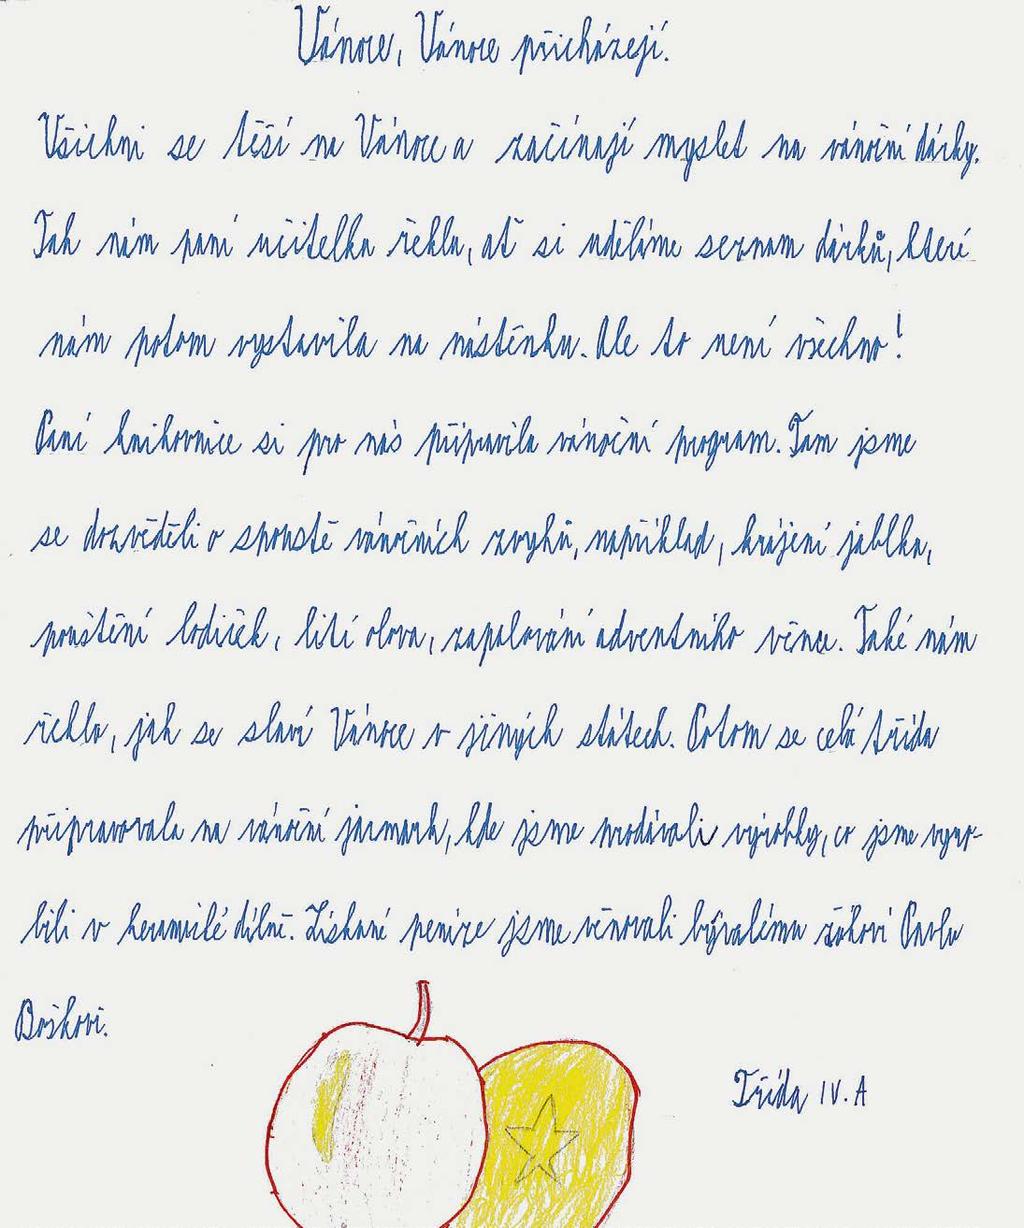 Vánoce, Vánoce přicházejí.
Všichni se těší na Vánoce a začínají myslet na vánoční dárky.
Tak nám paní učitelka řekla, ať si uděláme seznam dárků, které
nám potom vystavila na nástěnku. Ale to není všechno!
Paní knihovnice si pro nás připravila vánoční program. Tam jsme
se dozvěděli o spoustě vánočních zvyků, například, krájení jablka,
pouštění lodiček, lití olova, zapalování adventního věnce. Také nám
řekla, jak se slaví Vánoce v jiných státech. Potom se celá třída
připravovala na vánoční jarmark, kde jsme prodávali výrobky, co jsme vyro-
bili v keramické dílně. Získané peníze jsme věnovali bývalému žákovi Pavlu
Boškovi.
Třída IV. A